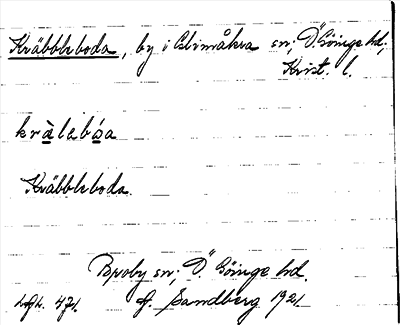 Kräbbleboda, by i Glimåkra sn; Ö. Göinge hd,
Krist. l.
kràlebo̱a
Kräbbleboda.
Broby sn; Ö. Göinge hd.
471. J. Sandberg 1921.